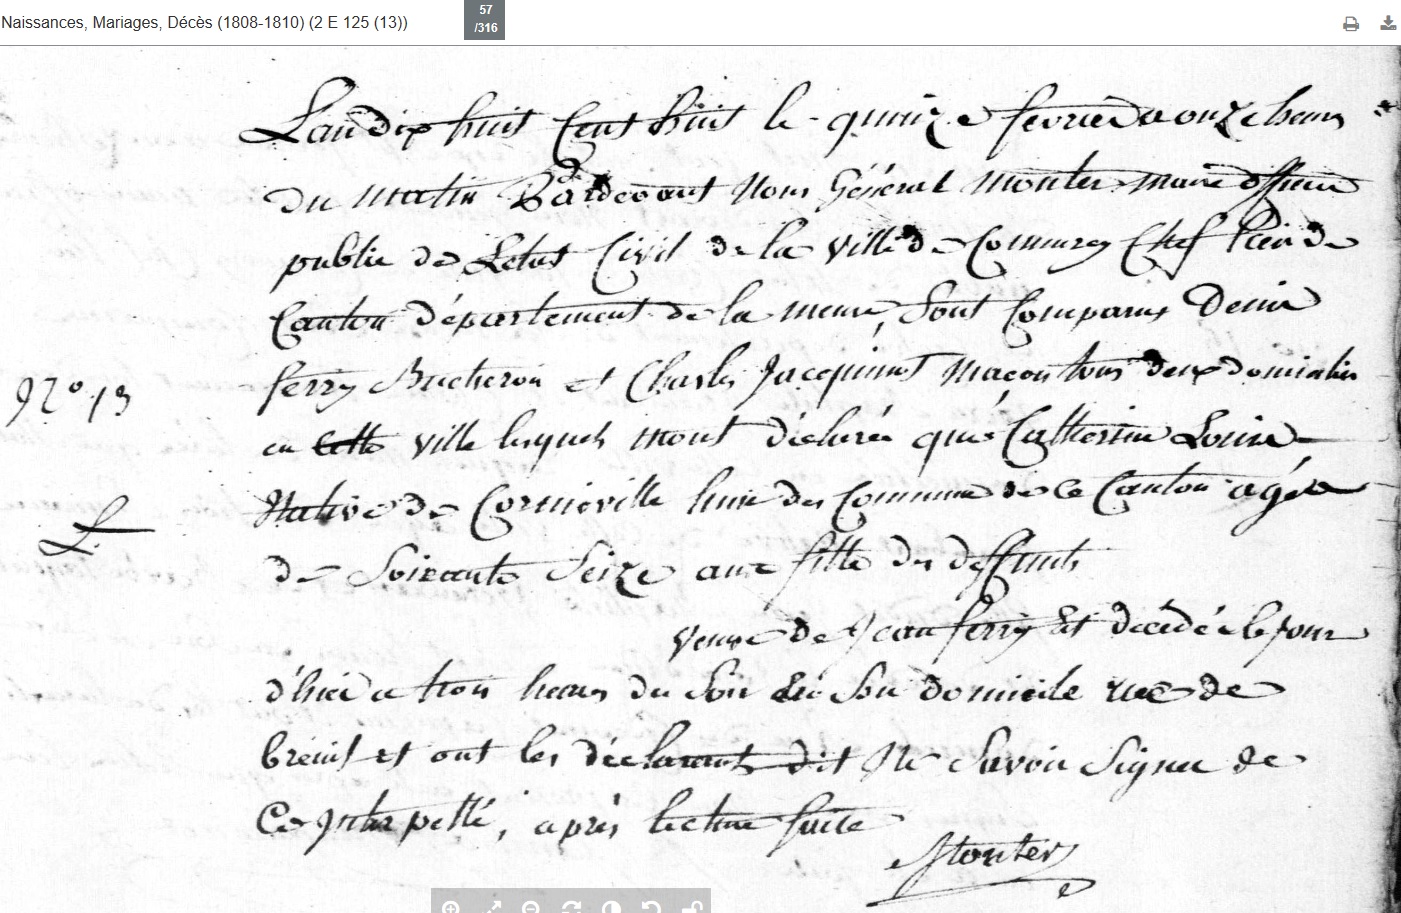 Naissances, Mariages, Décès (1808-1810) (2 E 125 (13))
57
/316
L'an dix huit Cent huit le quinze fevrier a onze heures
du Matin Pardevant Nous Général Monter Maire officier
public de Letat Civil de la ville de Commercy Chef lieu de
Canton département de la meuse, Sont Comparus Denis
ferry Bucheron et Charles Jacquinot Maçon tous deux domiciliés
N° 13
en cette ville lesquels mont déclaré que Catherine Louise
Native de Cornieville l'une des Commune de ce Canton agée
L
de Soixante Seize ans fille des deffunts
veuve de Jean ferry Est décédée le jour
d'hier a trois heures du Soir en Son domicile rue de
breuil et ont les déclarants dit Ne Savoir Signer de
Ce Interpellé, après lecture faite
Monter